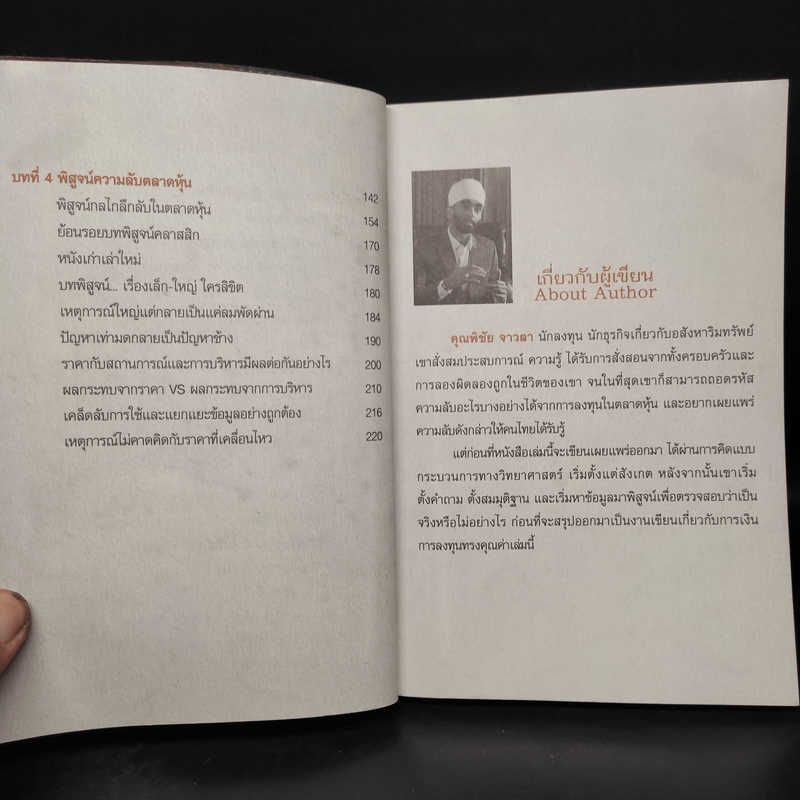 บทที่ 4 พิสูจน์ความลับตลาดหุ้น
พิสูจน์กลไกลึกลับในตลาดหุ้น 142
ย้อนรอยบทพิสูจน์คลาสสิก 154
หนังเก่าเล่าใหม่ 170
บทพิสูจน์... เรื่องเล็ก-ใหญ่ ใครลิขิต 178
เหตุการณ์ใหญ่แต่กลายเป็นแค่ลมพัดผ่าน 180
ปัญหาเท่ามดกลายเป็นปัญหาช้าง 184
ราคากับสถานการณ์และการบริหารมีผลต่อกันอย่างไร 190
ผลกระทบจากราคา VS ผลกระทบจากการบริหาร 200
เคล็ดลับการใช้และแยกแยะข้อมูลอย่างถูกต้อง 210
เหตุการณ์ไม่คาดคิดกับราคาที่เคลื่อนไหว 216
220
เกี่ยวกับผู้เขียน
About Author
คุณพิชัย จาวลา นักลงทุน นักธุรกิจเกี่ยวกับอสังหาริมทรัพย์
เขาสั่งสมประสบการณ์ ความรู้ ได้รับการสั่งสอนจากทั้งครอบครัวและ
การลองผิดลองถูกในชีวิตของเขา จนในที่สุดเขาก็สามารถถอดรหัส
ความลับอะไรบางอย่างได้จากการลงทุนในตลาดหุ้น และอยากเผยแพร่
ความลับดังกล่าวให้คนไทยได้รับรู้
แต่ก่อนที่หนังสือเล่มนี้จะเขียนเผยแพร่ออกมา ได้ผ่านการคิดแบบ
กระบวนการทางวิทยาศาสตร์ เริ่มตั้งแต่สังเกต หลังจากนั้นเขาเริ่ม
ตั้งคำถาม ตั้งสมมุติฐาน และเริ่มหาข้อมูลมาพิสูจน์เพื่อตรวจสอบว่าเป็น
จริงหรือไม่อย่างไร ก่อนที่จะสรุปออกมาเป็นงานเขียนเกี่ยวกับการเงิน
การลงทุนทรงคุณค่าเล่มนี้